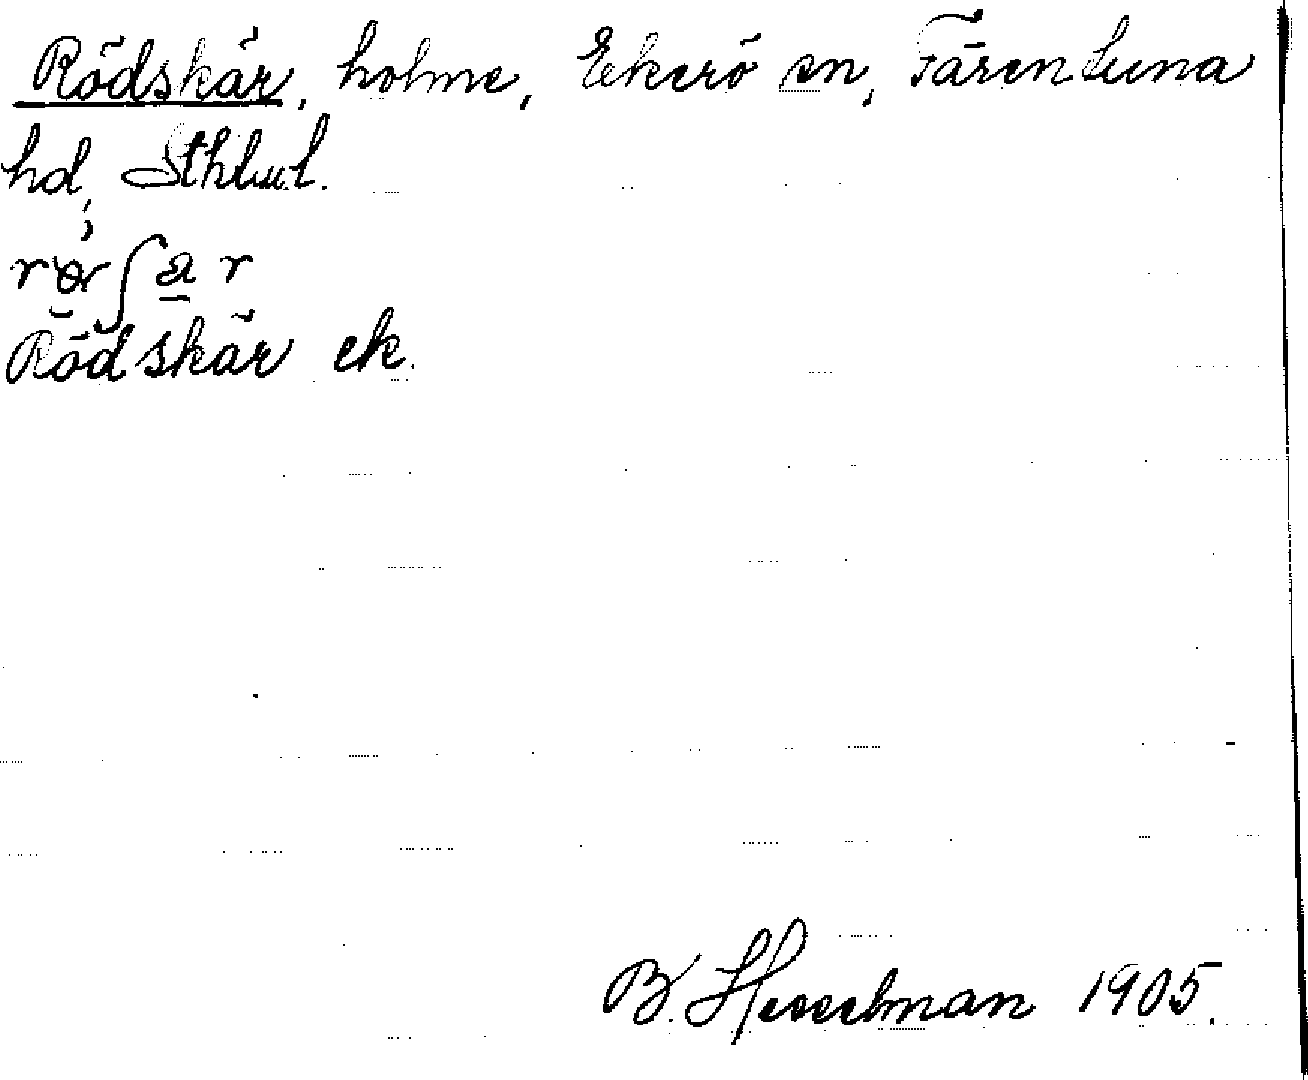 Rödskär, holme, Ekerö sn, Färentuna
hd, Sthlml.
Rödskär ek.
B. Hesselman 1905.